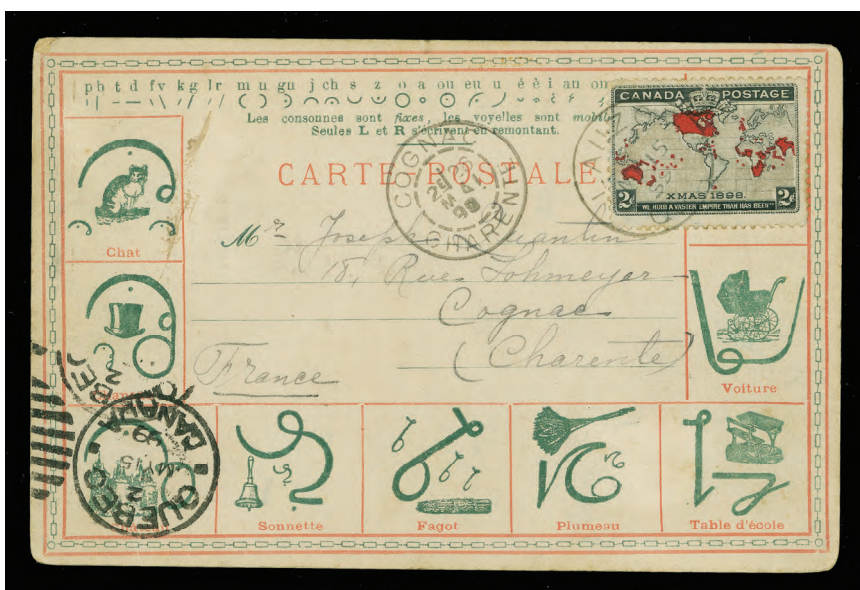 ph t d fv k g l r m n gn j ch s z o a ou eu u é è i an on
Les consonnes sont fixes, les voyelles sont
Seules L et R s'écrivent en remontant.
CARTE-POSTALE
CANADA POSTAGE
XMAS 1898.
2c 2c
WE HOLD A VASTER EMPIRE THAN HAS BEEN
COGNAC
29 MAI 99
CHARENTE
Mr Joseph Quantin
18, Rue Lohmeyer
Cognac
(Charente)
France
Chat
Voiture
QUEBEC
CANADA
2
MY 15
99
Sonnette
Fagot
Plumeau
Table d'école